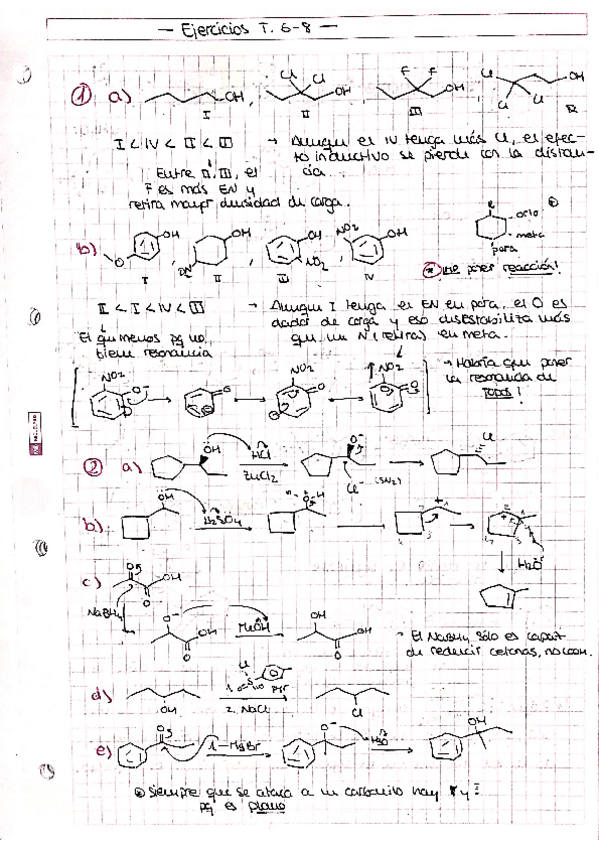 — Ejercicios T. 6-8 —
① a)
OH, Cl Cl OH, F F OH, Cl Cl Cl OH
I II III IV
I < IV < II < III → Aunque el IV tenga más Cl, el efec-
to inductivo se pierde con la distan-
cia.
Entre II, III, el
F es más EN y
retira mayor densidad de carga.
b)
OH OH OH NO2 OH
NO2
I II III IV
orto
meta
para
poner reacción!
II < I < IV < III → Aunque I tenga el EN en para, el O es
dador de carga y eso desestabiliza más
que un N (retira) en meta.
El que menos pq no
tiene resonancia
NO2 NO2 NO2
→ Habría que poner
la resonancia de
TODOS!
② a) OH HCl
ZnCl2
Cl⁻ (SN2)
Cl
b) OH H2SO4
H2O
c) OH
NaBH4
MeOH
OH
- El NaBH4 sólo es capaz
de reducir cetonas, no COOH.
d) OH
1. pyr
2. NaCl
Cl
e) 1. MgBr
H3O
OH
Siempre que se ataca a un carbonilo hay
pq es plano